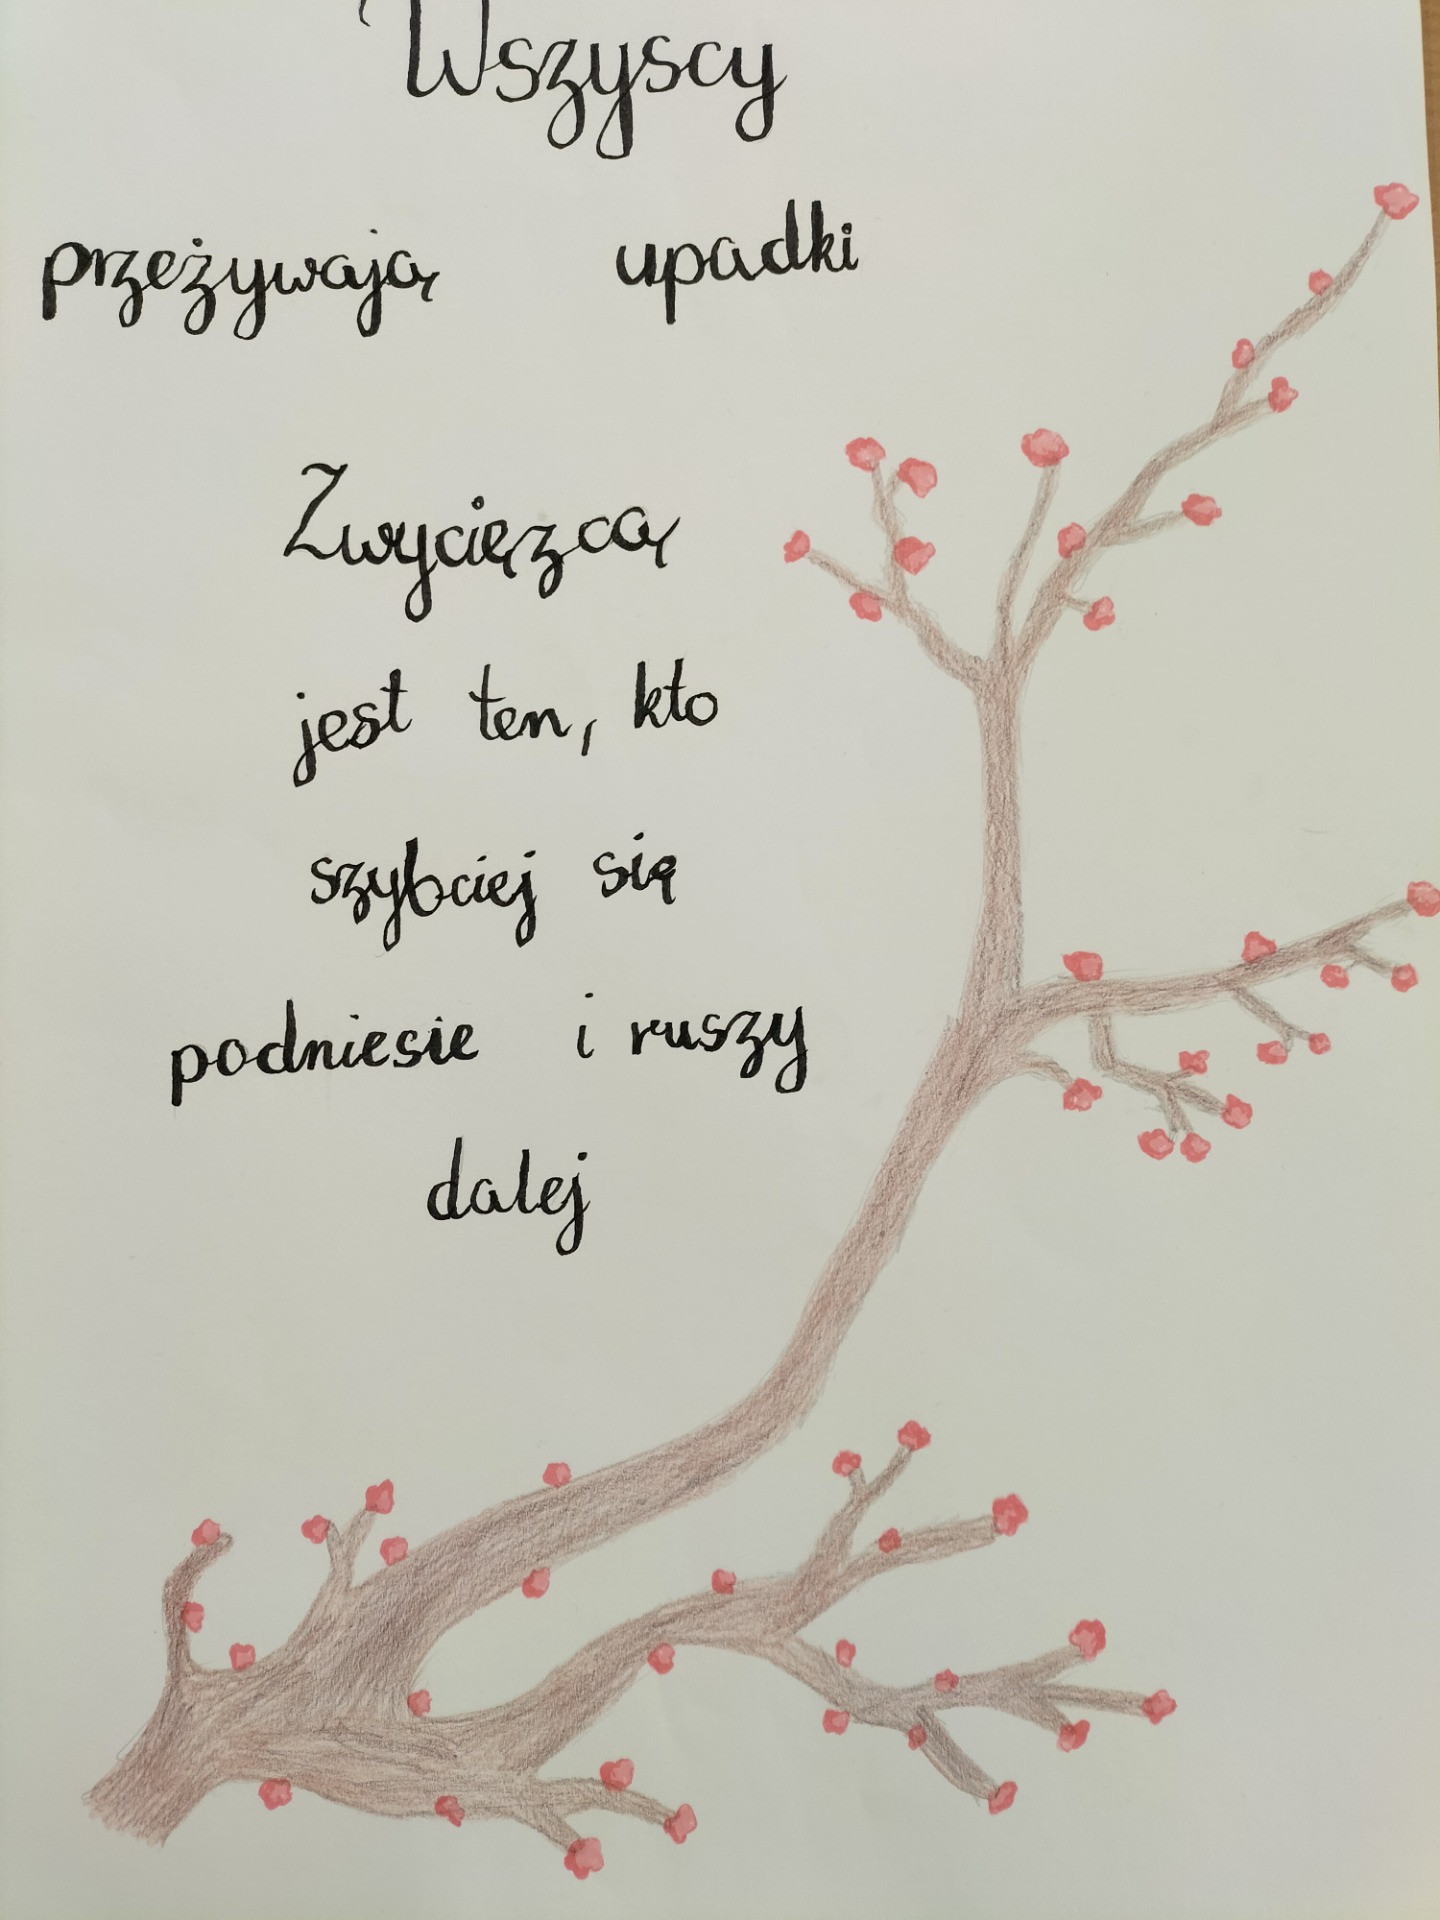 Wszyscy
przeżywają upadki
Zwycięzcą
jest ten, kto
szybciej się
podniesie i ruszy
dalej